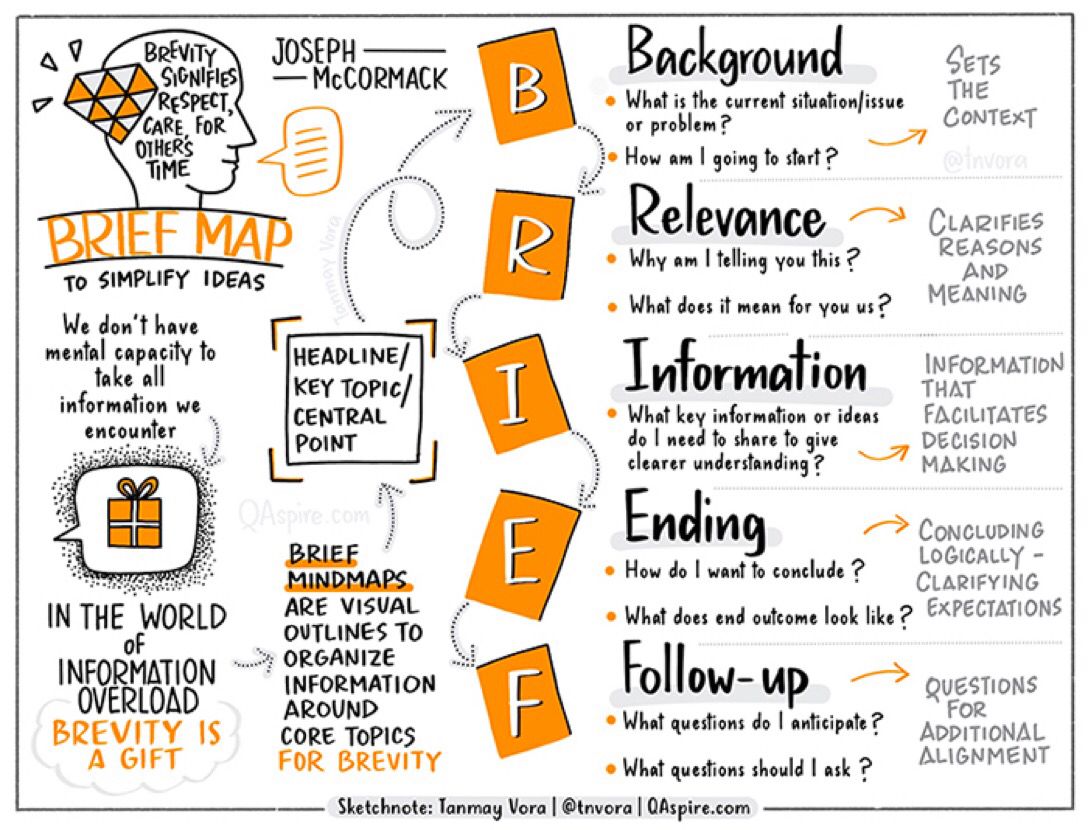 BREVITY
SIGNIFIES
RESPECT,
CARE FOR
OTHER'S
TIME
JOSEPH
McCORMACK
BRIEF MAP
TO SIMPLIFY IDEAS
We don't have
mental capacity to
take all
information we
encounter
IN THE WORLD
of
INFORMATION
OVERLOAD
BREVITY IS
A GIFT
BRIEF
MINDMAPS
ARE VISUAL
OUTLINES TO
ORGANIZE
INFORMATION
AROUND
CORE TOPICS
FOR BREVITY
QAspire.com
HEADLINE/
KEY TOPIC/
CENTRAL
POINT
Tanmay Vora
B
Background
What is the current situation/issue
or problem?
How am I going to start?
SETS
THE
CONTEXT
@tnvora
R
Relevance
Why am I telling you this?
What does it mean for you us?
CLARIFIES
REASONS
AND
MEANING
I
Information
What key information or ideas
do I need to share to give
clearer understanding?
INFORMATION
THAT
FACILITATES
DECISION
MAKING
E
Ending
How do I want to conclude?
What does end outcome look like?
CONCLUDING
LOGICALLY -
CLARIFYING
EXPECTATIONS
F
Follow-up
What questions do I anticipate?
What questions should I ask?
QUESTIONS
FOR
ADDITIONAL
ALIGNMENT
Sketchnote: Tanmay Vora | @tnvora | QAspire.com